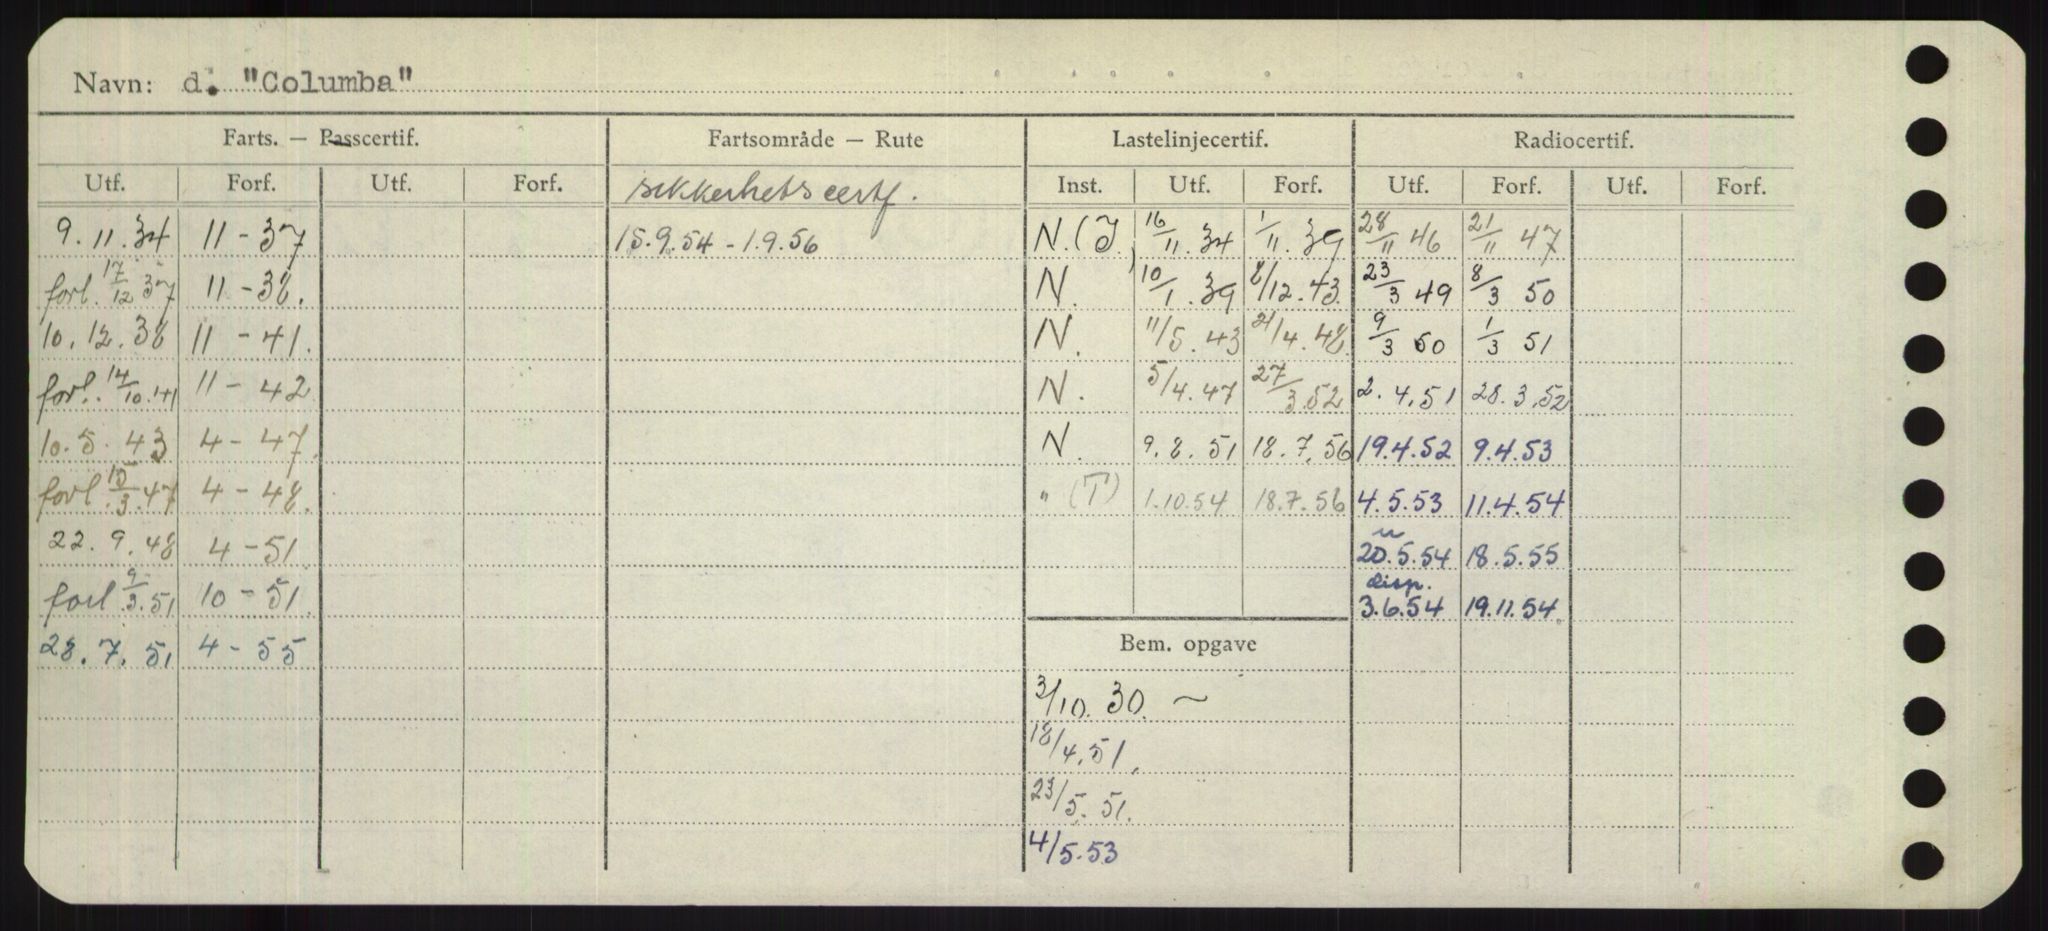 Navn: d. "Columba"
Farts. — Passcertif. Fartsområde — Rute Lastelinjecertif. Radiocertif.
Utf. Forf. Utf. Forf. sikkerhetscertf. Inst. Utf. Forf. Utf. Forf. Utf. Forf.
9.11.34 11-37 15.9.54 - 1.9.56 N. (J.) 16/11.34 1/11.39 28/11 46 21/11 47
forl. 17/12 37 11-38. N. 10/1.39 8/12.43. 23/3 49 8/3 50
10.12.38 11-41. N. 11/5.43 21/4.48. 9/3 50 1/3 51
forl. 14/10.41 11-42 N. 5/4.47 27/3.52 2.4.51 28.3.52
10.5.43 4-47. N. 9.8.51 18.7.56 19.4.52 9.4.53
forl 15/3.47 4-48. " (T) 1.10.54 18.7.56 4.5.53 11.4.54
22.9.48 4-51. 20.5.54 18.5.55
forl 9/3.51 10-51. disp. 3.6.54 19.11.54.
28.7.51 4-55 Bem. opgave
3/10.30. ~
18/4.51.
23/5.51.
4/5.53